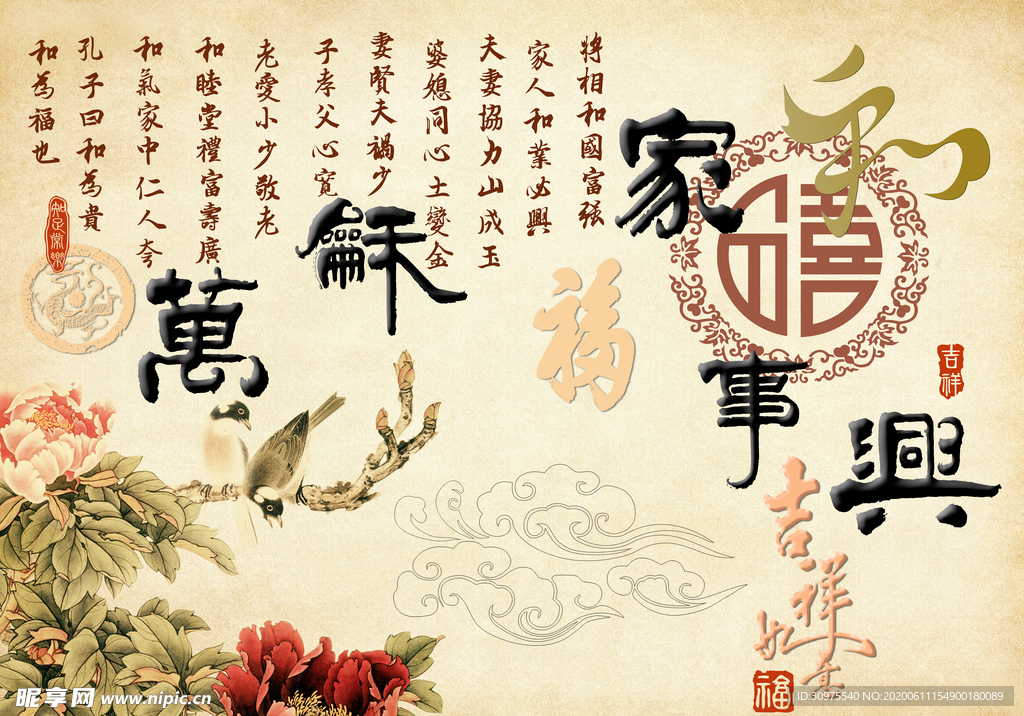 將相和國富强
家人和業必興
夫妻協力山成玉
婆媳同心土變金
妻賢夫禍少
子孝父心寬
老愛小少敬老
和睦堂禮富壽廣
和氣家中仁人夸
孔子曰和為貴
和為福也
家
龢
萬
事
興
和
福
吉祥如意
吉祥
知足常樂
福
昵享网 www.nipic.cn
ID:30975540 NO:20200611154900180089